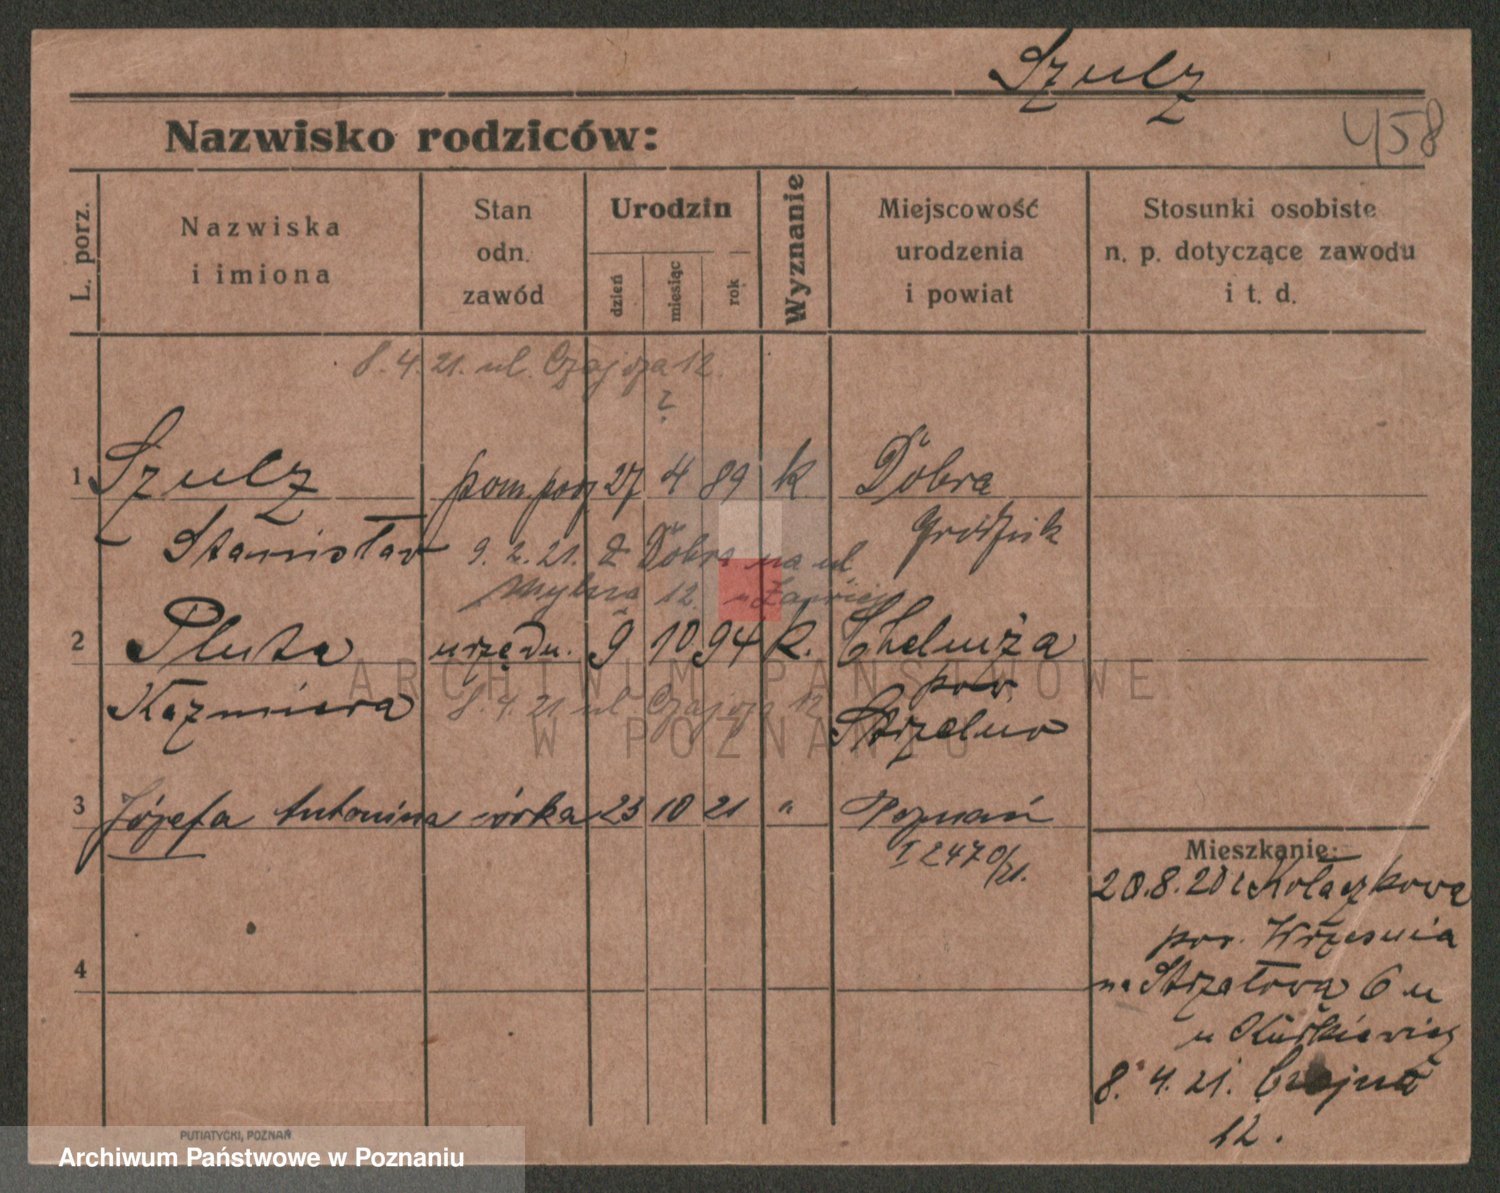 Szulz
458
Nazwisko rodziców:
L. porz.
Nazwiska
i imiona
Stan
odn.
zawód
Urodzin
dzień
miesiąc
rok
Wyznanie
Miejscowość
urodzenia
i powiat
Stosunki osobiste
n. p. dotyczące zawodu
i t. d.
8. 4. 21. ul. Czajcza 12.
?
1 Szulz pom. 27 4 89 k. Dobra
Stanisław
9. 2. 21. z Dobra na ul
12. u
2 Pluta urzędn. 9 10 94 k. Chełmża
Kazmiera pow
8. 4. 21 ul Czajcza 12
Strzelno
3 Józefa Antonina córka 23 10 21 " Poznań
I 2470/21.
4
Mieszkanie:
20.8.20 z Kołaczkowa
pow. Wrzesnia
na Strzałową 6 u
u
8. 4. 21. Czajcza
12.
PUTIATYCKI, POZNAŃ.
ARCHIWUM PAŃSTWOWE
W POZNANIU
Archiwum Państwowe w Poznaniu